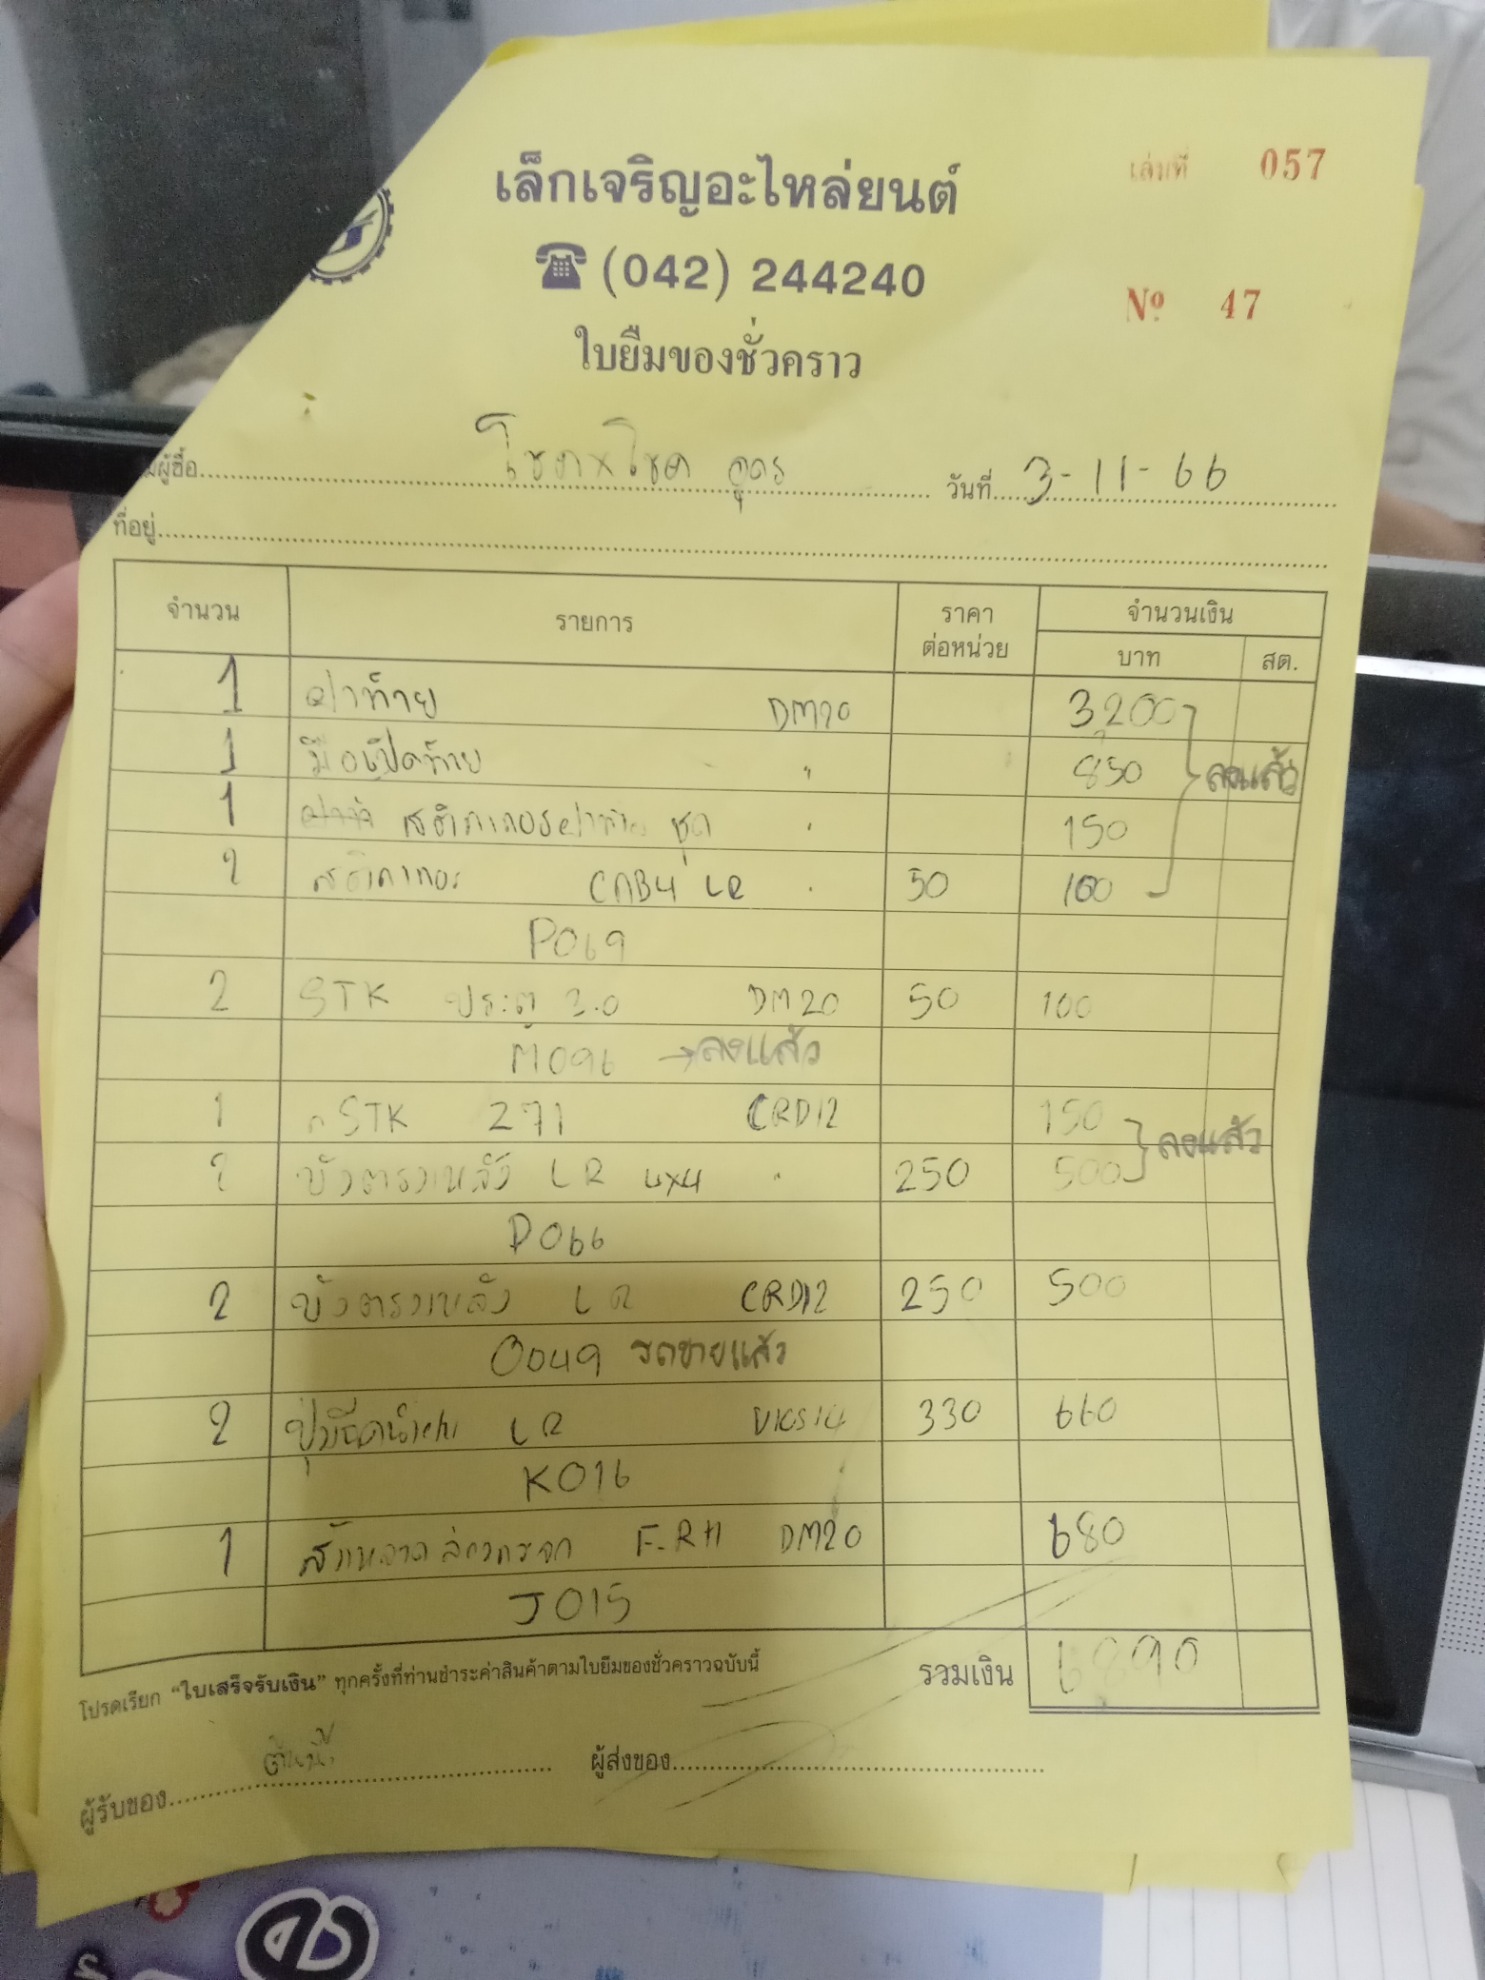 เล็กเจริญอะไหล่ยนต์
เล่มที่ 057
☎ (042) 244240
Nº 47
ใบยืมของชั่วคราว
ผู้ซื้อ โชคxโชค อุดร วันที่ 3-11-66
ที่อยู่
จำนวน รายการ ราคาต่อหน่วย จำนวนเงิน
บาท สต.
1 ฝาท้าย DM20 3,200
1 มือเปิดท้าย " 850 ลงแล้ว
1 สติกเกอร์ฝาท้าย ชุด " 150
2 สติกเกอร์ CAB4 LR " 50 100
P069
2 STK ประตู 3.0 DM20 50 100
M096 → ลงแล้ว
1 STK 271 CRD12 150
2 บังตรงหลัง LR 4x4 " 250 500 ลงแล้ว
D066
2 บังตรงหลัง LR CRD12 250 500
O049 รถขายแล้ว
2 ปุ่มฉีดน้ำฝน LR 330 660
K016
1 สักหลาดล่างกระจก F-RH DM20 680
J015
โปรดเรียก “ใบเสร็จรับเงิน” ทุกครั้งที่ท่านชำระค่าสินค้าตามใบยืมของชั่วคราวฉบับนี้
รวมเงิน 6890
ผู้รับของ ผู้ส่งของ